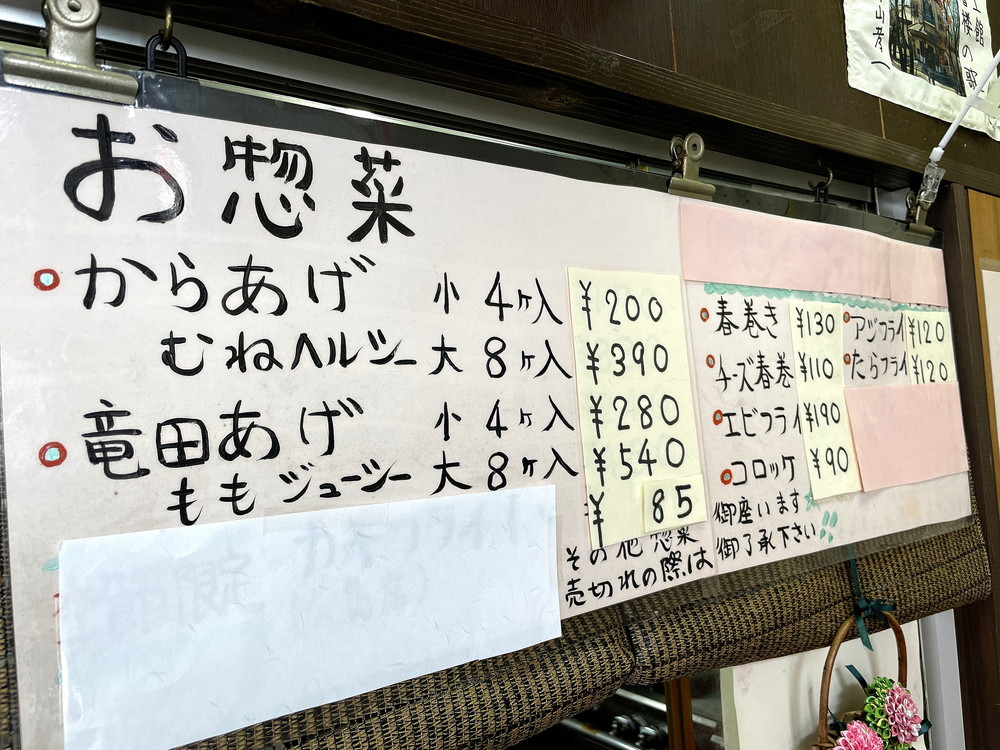 お惣菜
からあげ 小 4ヶ入 ¥200
むねヘルシー 大 8ヶ入 ¥390
竜田あげ 小 4ヶ入 ¥280
ももジューシー 大 8ヶ入 ¥540
¥85
春巻き ¥130
チーズ春巻 ¥110
エビフライ ¥190
コロッケ ¥90
アジフライ ¥120
たらフライ ¥120
その他惣菜御座います
売切れの際は御了承下さい